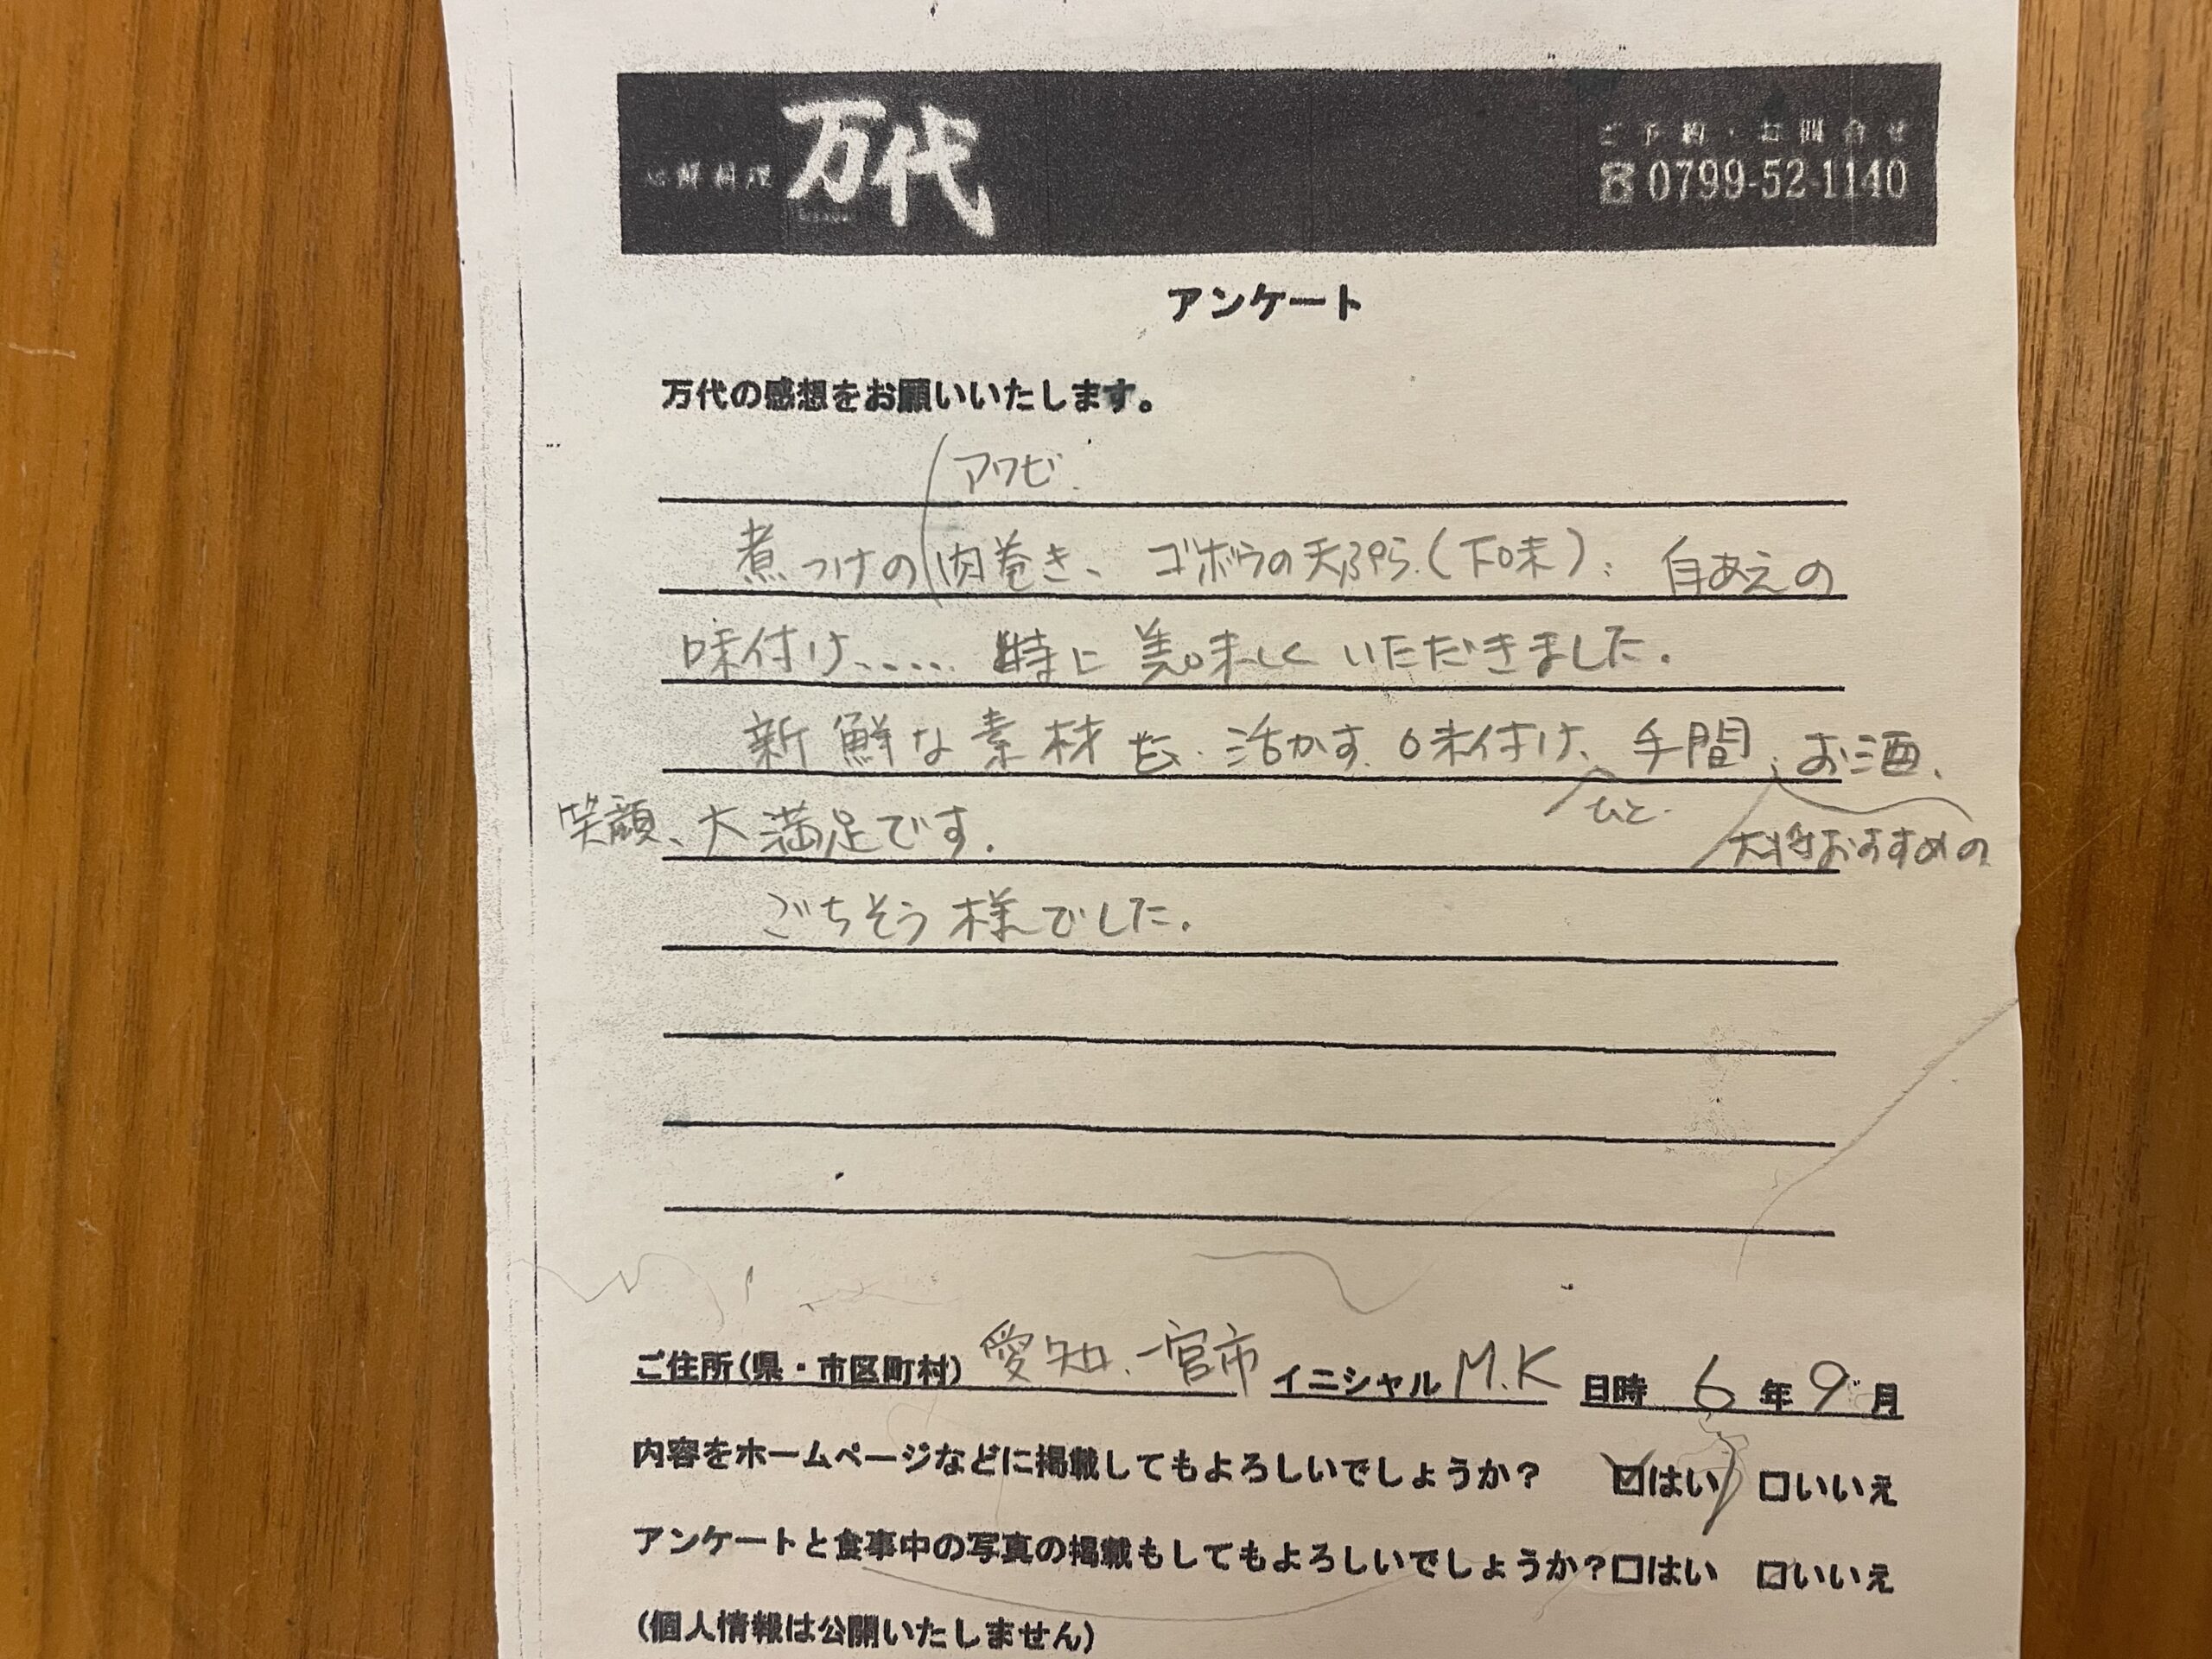 海鮮料理 万代
ご予約・お問合せ
☎0799-52-1140
アンケート
万代の感想をお願いいたします。
アワビ.
煮つけの 肉巻き、ゴボウの天ぷら(下味)、白あえの
味付け、、、、、特に美味しくいただきました.
新鮮な素材を活かす味付け、手間、お酒、
ひと
大将おすすめの
笑顔、大満足です.
ごちそう様でした.
ご住所(県・市区町村) 愛知、一宮市 イニシャル M.K 日時 6年9月
内容をホームページなどに掲載してもよろしいでしょうか? ☑はい □いいえ
アンケートと食事中の写真の掲載もしてもよろしいでしょうか?□はい □いいえ
(個人情報は公開いたしません)